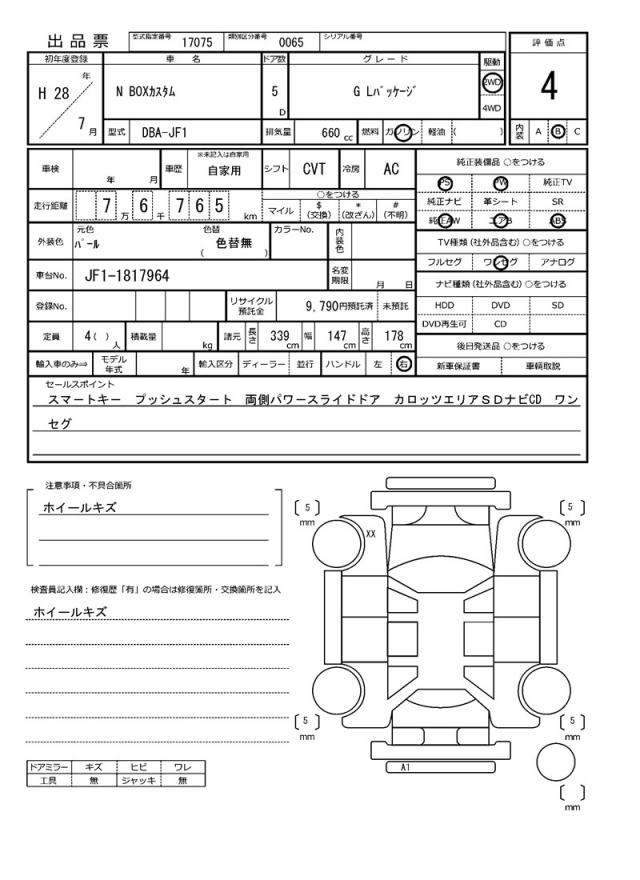 出品票 型式指定番号 17075 類別区分番号 0065 シリアル番号
評価点
4
初年度登録 車名 ドア数 グレード 駆動
H 28 年 7 月
N BOXカスタム 5 D G Lパッケージ 2WD
4WD
型式 DBA-JF1 排気量 660 cc 燃料 ガソリン 軽油 ( )
内装 A B C
車検 年 月 車歴 ※未記入は自家用 自家用 シフト CVT 冷房 AC
走行距離 7 万 6 千 7 6 5 km
○をつける
マイル $ (交換) * (改ざん) # (不明)
外装色 元色 パール 色替 色替無 ( ) カラーNo. 内装色
車台No. JF1-1817964 名変期限 月 日
登録No. リサイクル預託金 9,790円預託済 未預託
定員 4 ( ) 人 積載量 kg 諸元 長さ 339 cm 幅 147 cm 高さ 178 cm
輸入車のみ⇒ モデル年式 年 輸入区分 ディーラー 並行 ハンドル 左 右
純正装備品 ○をつける
PS PW 純正TV
純正ナビ 革シート SR
純正AW エアB ABS
TV種類 (社外品含む) ○をつける
フルセグ ワンセグ アナログ
ナビ種類 (社外品含む) ○をつける
HDD DVD SD
DVD再生可 CD
後日発送品 ○をつける
新車保証書 車輌取説
セールスポイント
スマートキー プッシュスタート 両側パワースライドドア カロッツエリアSDナビCD ワン
セグ
注意事項・不具合箇所
ホイールキズ
検査員記入欄：修復歴「有」の場合は修復箇所・交換箇所を記入
ホイールキズ
ドアミラー キズ ヒビ ワレ
工具 無 ジャッキ 無
[ 5 ] mm
[ 5 ] mm
XX
[ 5 ] mm
[ 5 ] mm
A1
[ ] mm